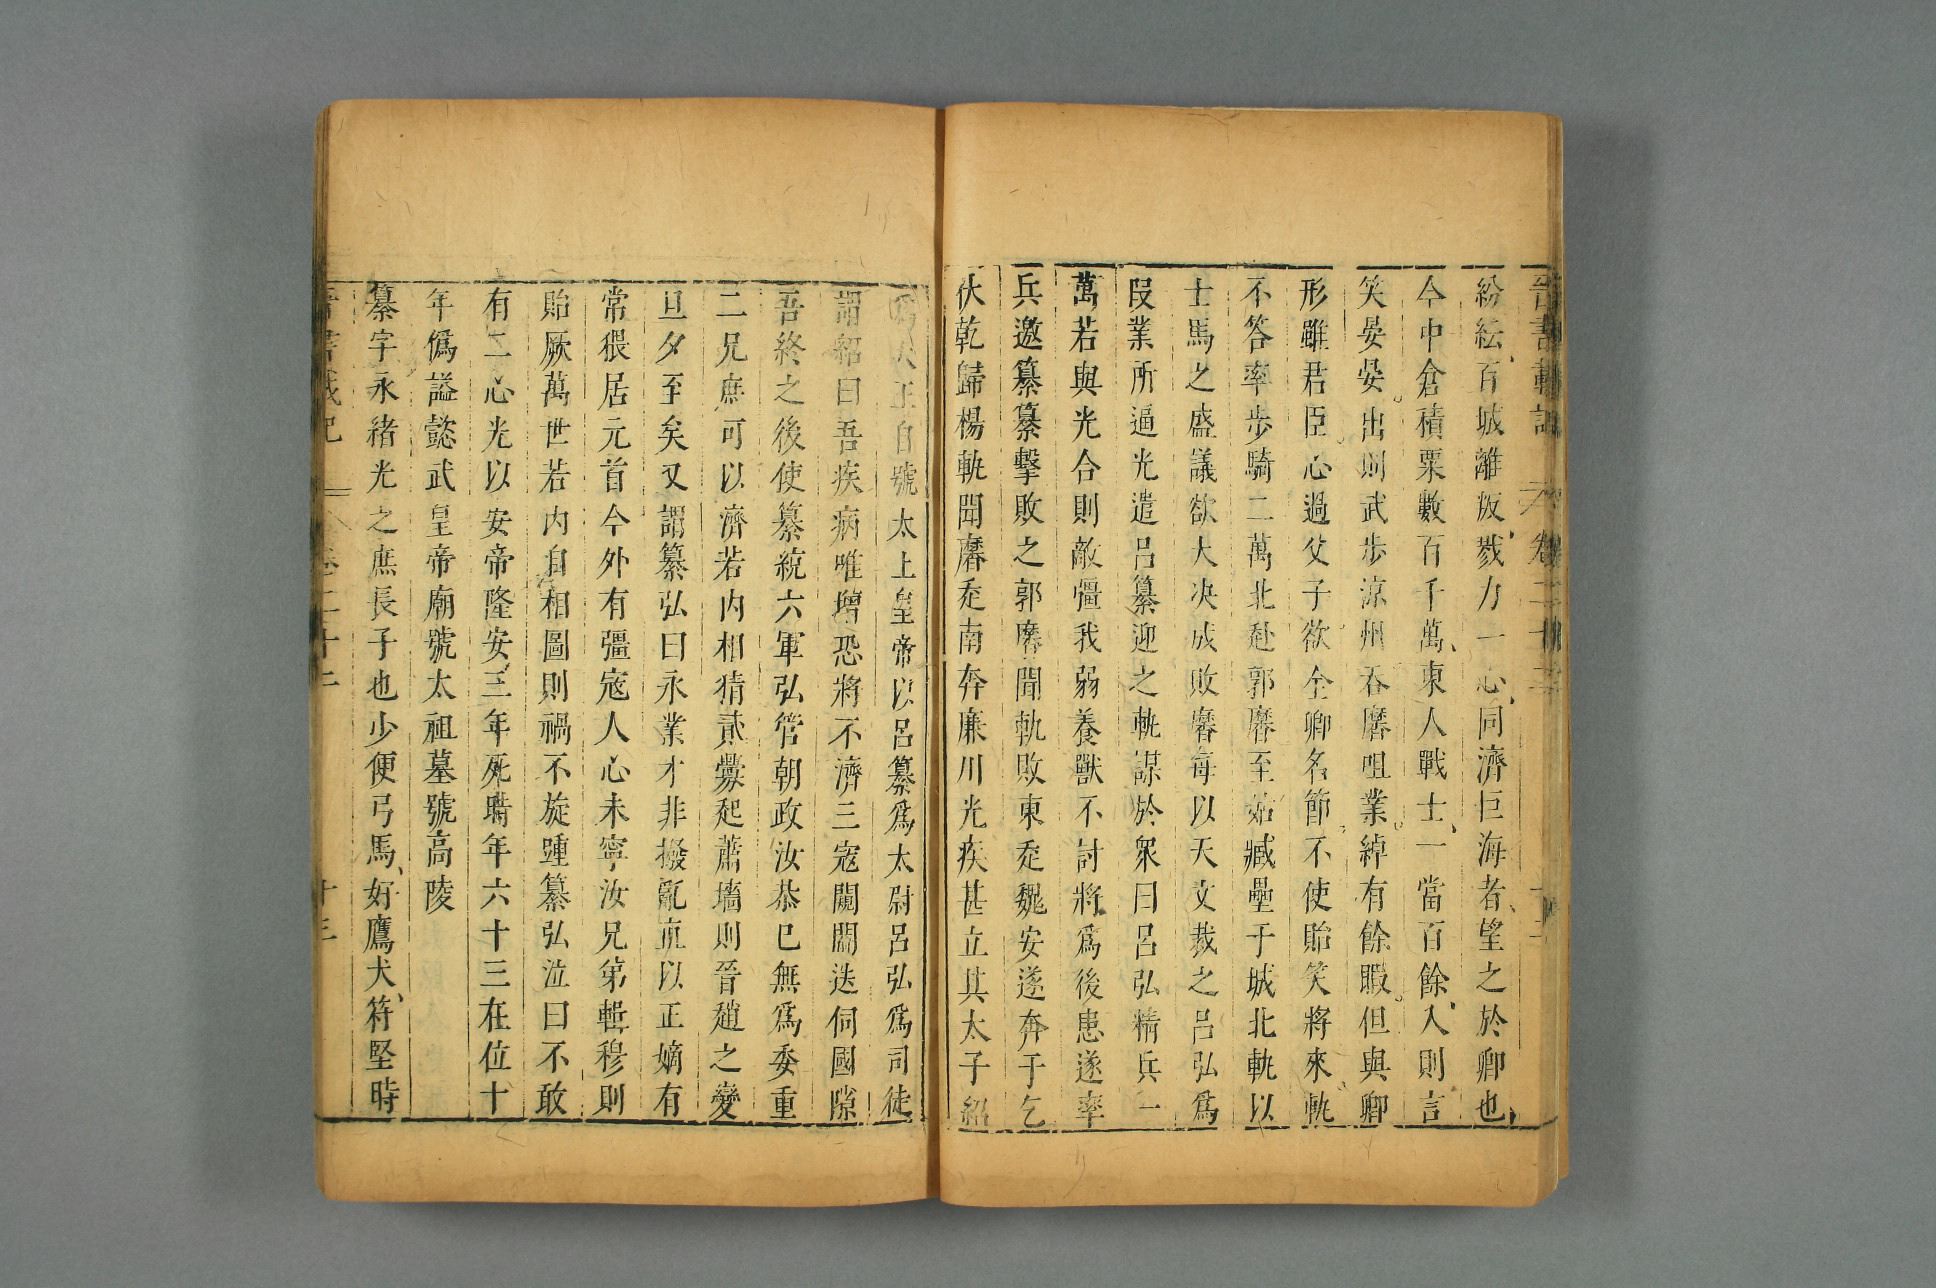 晉書載記 卷二十二
紛紜百城離叛戮力一心同濟巨海者望之於卿也
今中倉積粟數百千萬東人戰士一當百餘入則言
笑晏晏出則武步涼州吞䴢咀業綽有餘暇但與卿
形雖君臣心過父子欲全卿名節不使貽笑將來軌
不答率步騎二萬北赴郭䴢至姑臧壘于城北軌以
士馬之盛議欲大決成敗䴢每以天文裁之呂弘爲
段業所逼光遣呂纂迎之軌謀於衆曰呂弘精兵一
萬若與光合則敵彊我弱養獸不討將爲後患遂率
兵邀纂纂擊敗之郭䴢聞軌敗東走魏安遂奔于乞
伏乾歸楊軌聞䴢走南奔廉川光疾甚立其太子紹
爲天王自號太上皇帝以呂纂爲太尉呂弘爲司徒
謂紹曰吾疾病唯增恐將不濟三寇闚𨵦迭伺國隙
吾終之後使纂統六軍弘管朝政汝恭己無爲委重
二兄庶可以濟若内相猜貳釁起蕭墻則晉趙之變
旦夕至矣又謂纂弘曰永業才非撥亂直以正嫡有
常猥居元首今外有彊寇人心未寧汝兄弟輯穆則
貽厥萬世若内自相圖則禍不旋踵纂弘泣曰不敢
有二心光以安帝隆安三年死時年六十三在位十
年僞謚懿武皇帝廟號太祖墓號高陵
纂字永緒光之庶長子也少便弓馬好鷹犬苻堅時
晉書載記 卷二十二 十三